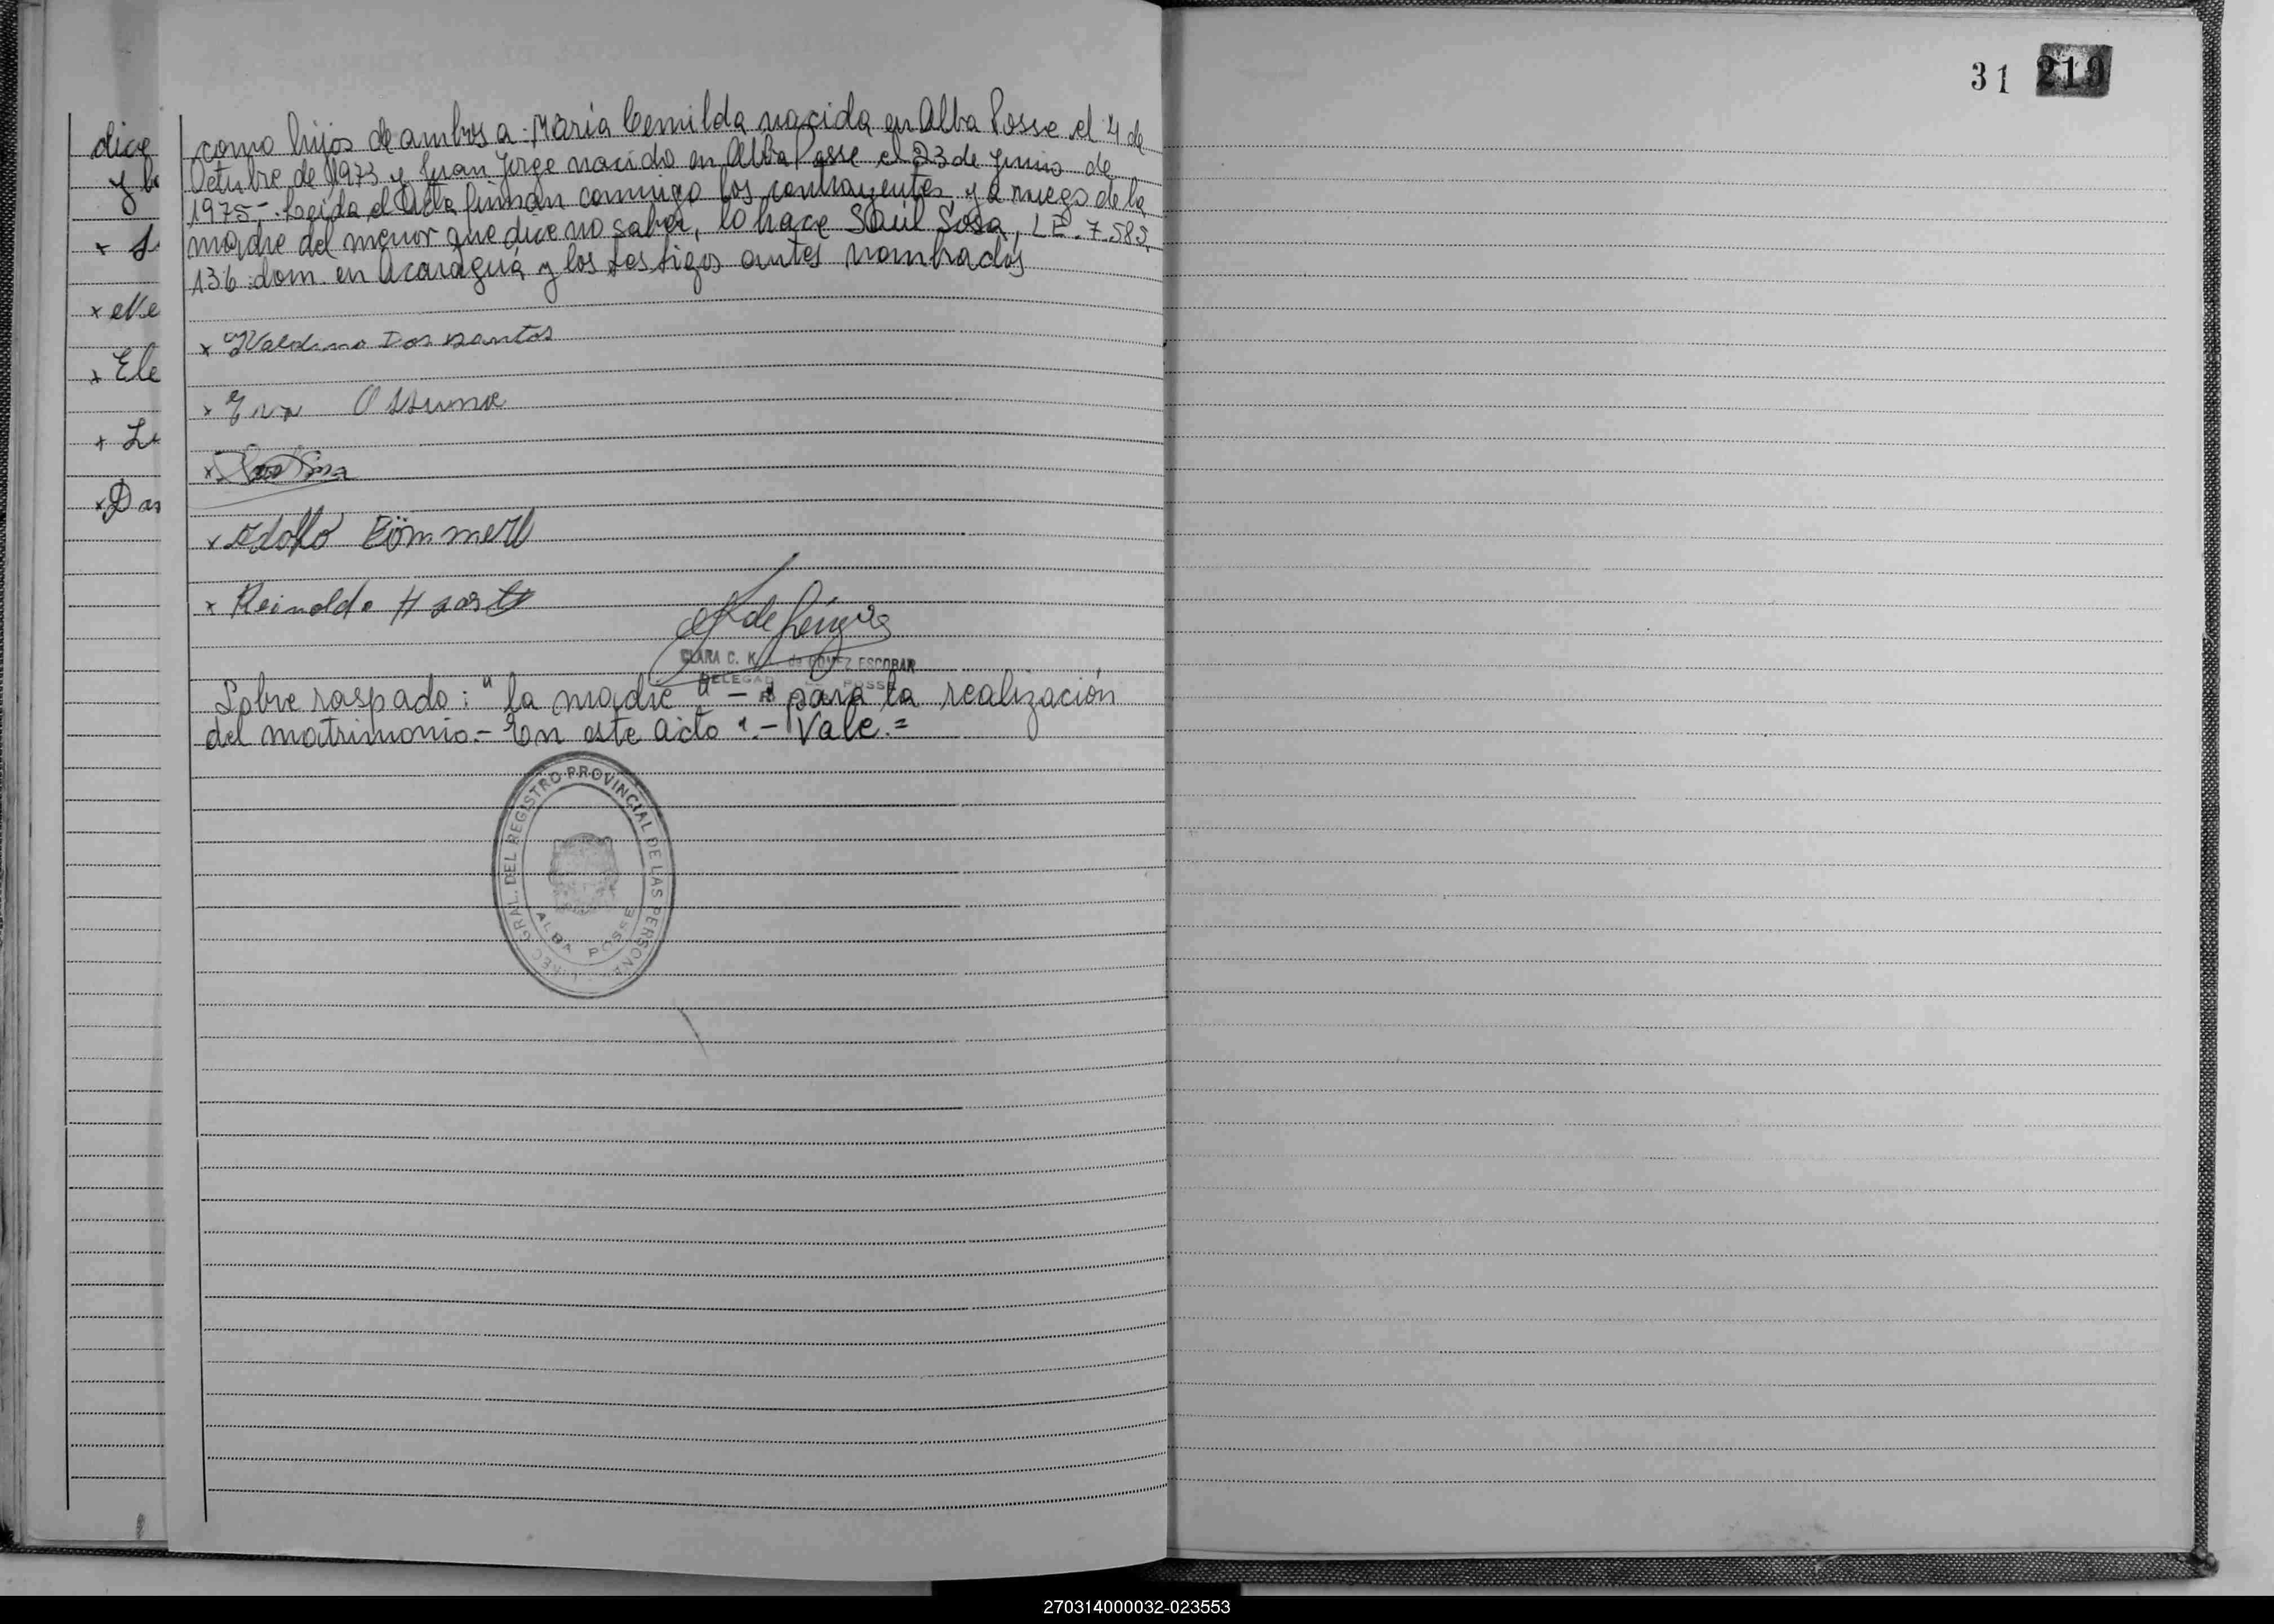 31 219
dice
y lo
como hijos de ambos a: María Cemilda nacida en Alba Posse el 4 de
Octubre de 1973 y Juan Jorge nacido en Alba Posse el 23 de Junio de
1975-. Leída el Acta firman conmigo los contrayentes y a ruego de la
madre del menor que dice no saber, lo hace Saúl Sosa, LE. 7.585.
136 dom. en Acaraguá y los testigos antes nombrados
x Ele
x Valdino Dos santos
x Eva Assume
x Adolfo Bömmerl
x Reinoldo Hartt
CLARA C. K. de GOMEZ ESCOBAR
DELEGAD POSSE
Sobre raspado: "la madre" - "para la realización
del matrimonio.- En este acto".- Vale.=
DIREC. GRAL. DEL REGISTRO PROVINCIAL DE LAS PERSONAS
ALBA POSSE
270314000032-023553